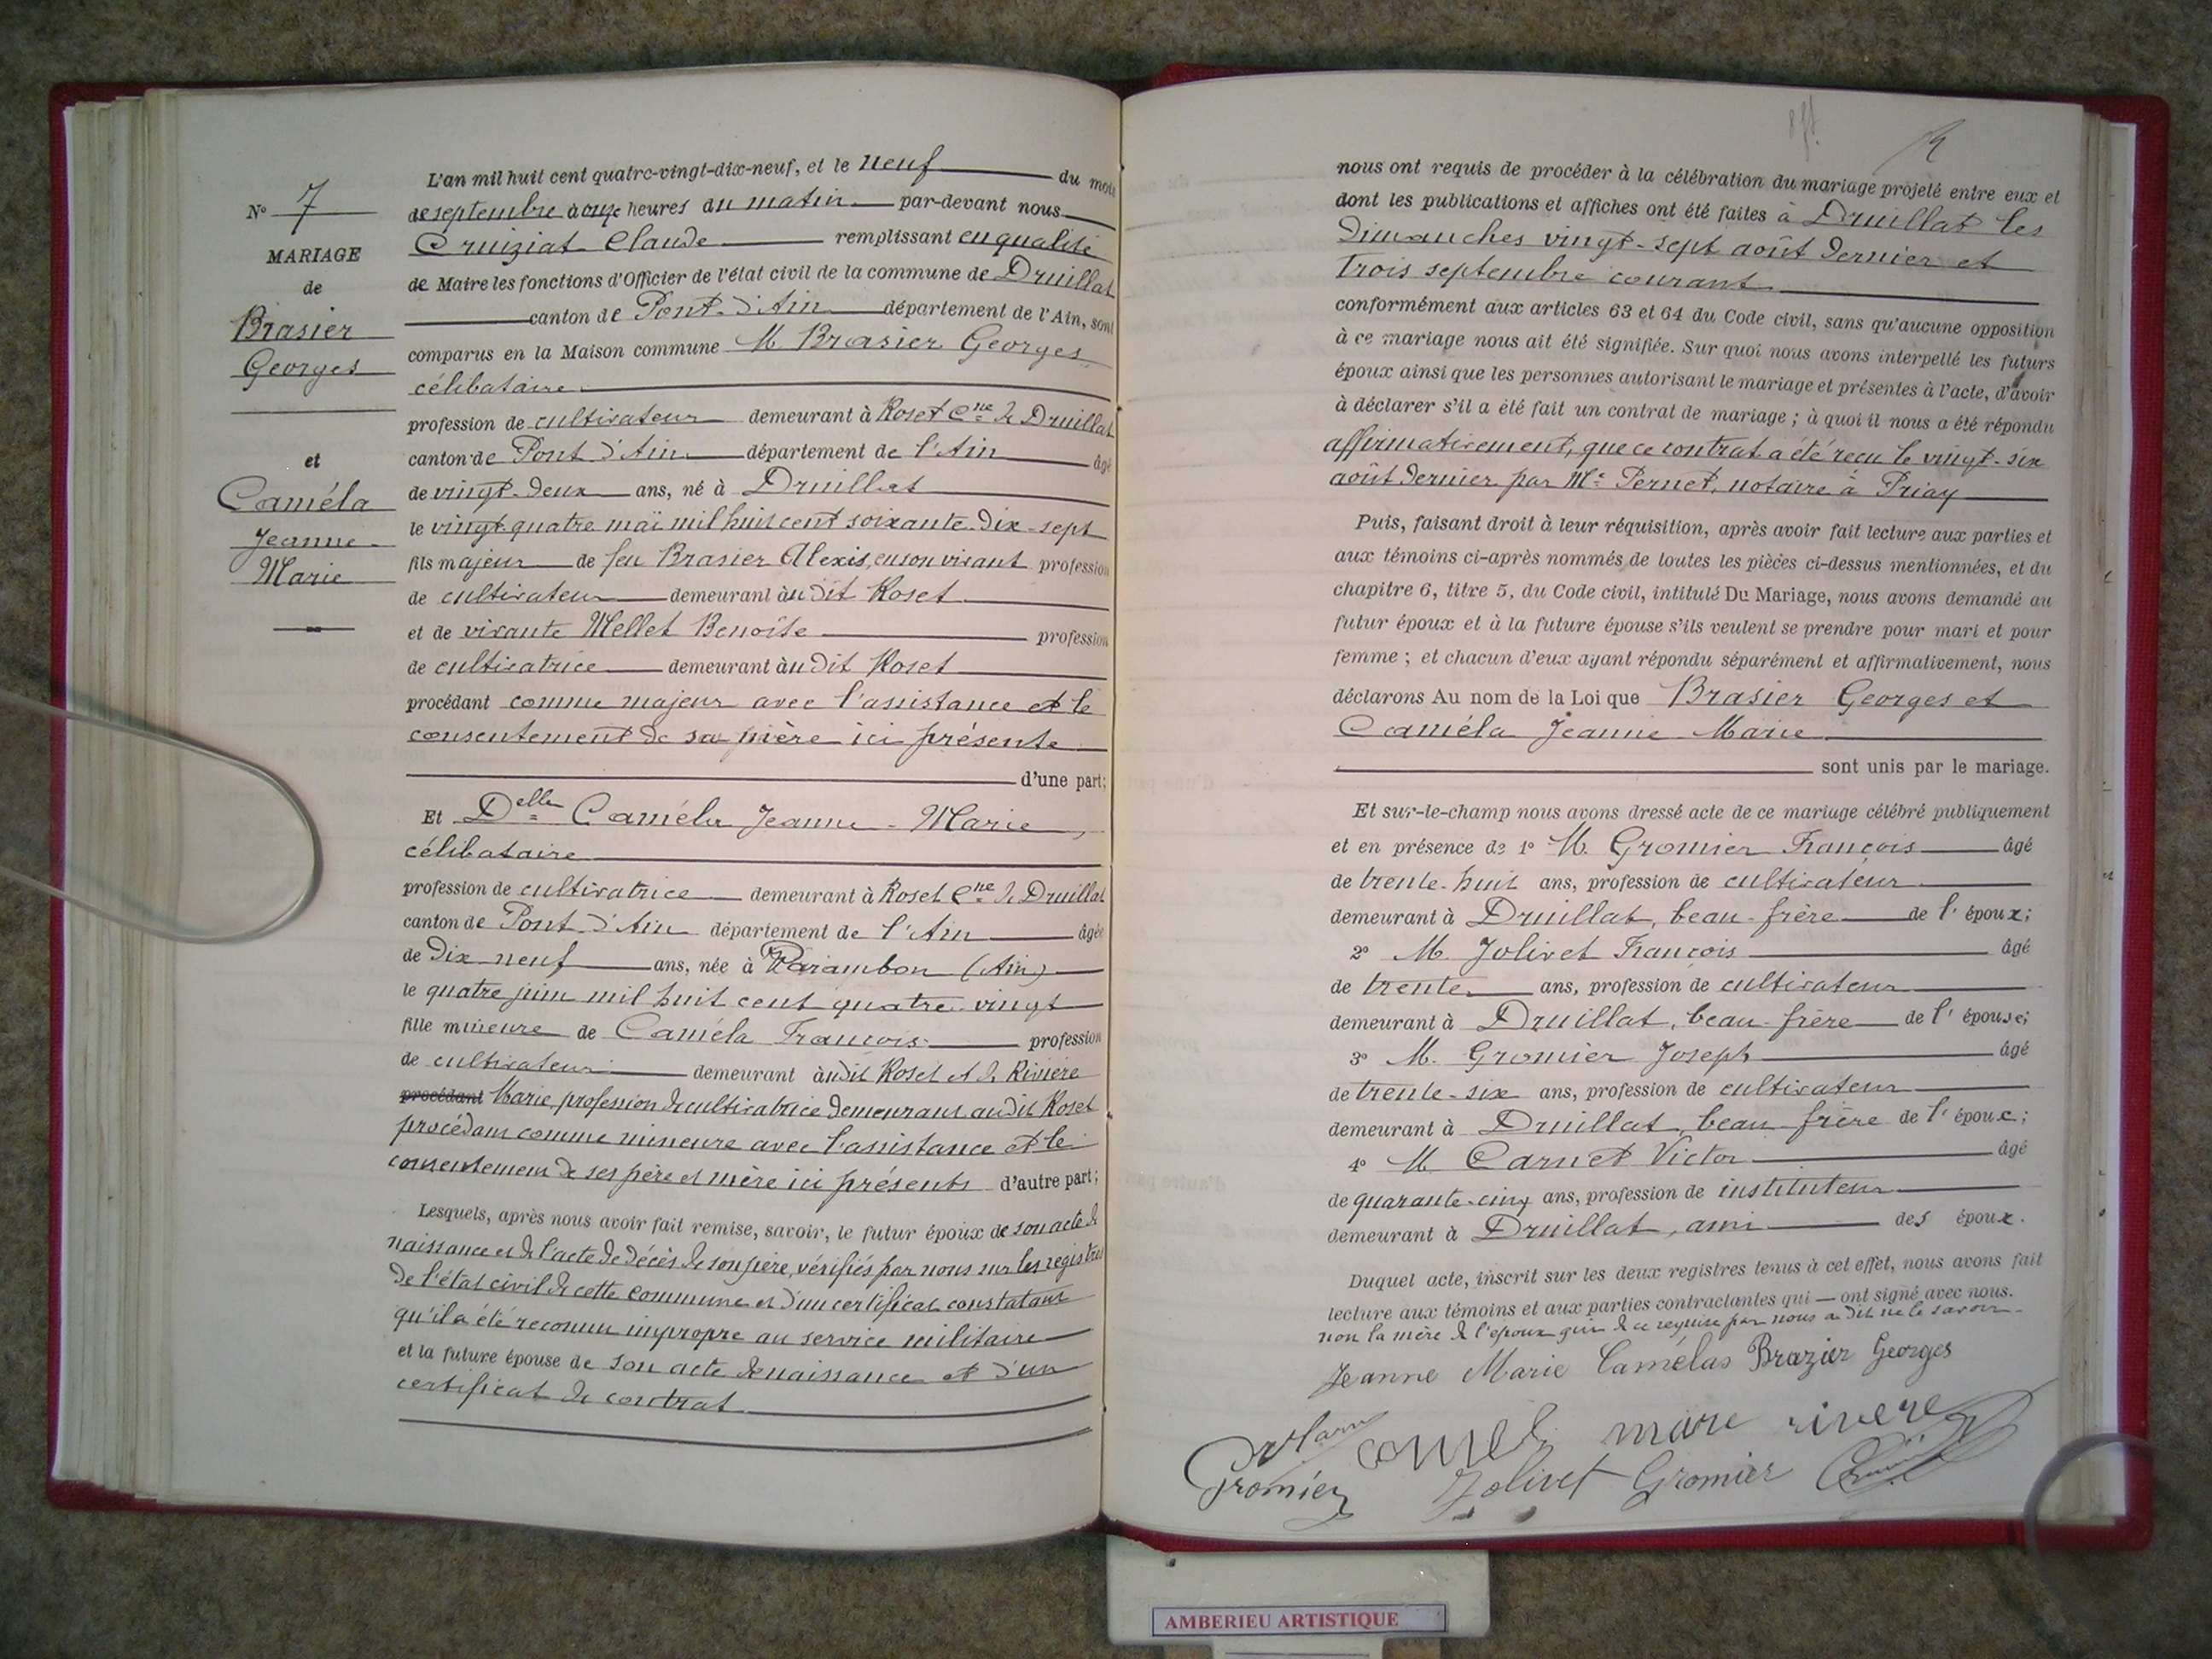 N° 7
MARIAGE
de
Brasier
Georges
et
Caméla
Jeanne-
Marie
L'an mil huit cent quatre-vingt-dix-neuf, et le neuf du mois
de septembre à onze heures du matin par-devant nous
Cruiziat Claude remplissant en qualité
de Maire les fonctions d'Officier de l'état civil de la commune de Druillat
canton de Pont-d'Ain département de l'Ain, sont
comparus en la Maison commune M. Brasier Georges,
célibataire
profession de cultivateur demeurant à Roset Cne de Druillat
canton de Pont d'Ain département de l'Ain âgé
de vingt-deux ans, né à Druillat
le vingt quatre mai mil huit cent soixante-dix-sept
fils majeur de feu Brasier Alexis, en son vivant profession
de cultivateur demeurant àu dit Roset
et de vivante Mellet Benoîte profession
de cultivatrice demeurant àu dit Roset
procédant comme majeur avec l'assistance et le
consentement de sa mère ici présente
d'une part;
Et Delle Caméla Jeanne-Marie,
célibataire
profession de cultivatrice demeurant à Roset Cne de Druillat
canton de Pont-d'Ain département de l'Ain âgée
de dix-neuf ans, née à Varambon (Ain)
le quatre juin mil huit cent quatre-vingt
fille mineure de Caméla François profession
de cultivateur demeurant àudit Roset et de Rivière
procédant Marie, profession de cultivatrice demeurant audit Roset
procédant comme mineure avec l'assistance et le
consentement de ses père et mère ici présents d'autre part;
Lesquels, après nous avoir fait remise, savoir, le futur époux de son acte de
naissance et de l'acte de décès de son père, vérifiés par nous sur les registres
de l'état civil de cette commune et d'un certificat constatant
qu'il a été reconnu impropre au service militaire
et la future épouse de son acte de naissance et d'un
certificat de contrat
nous ont requis de procéder à la célébration du mariage projeté entre eux et
dont les publications et affiches ont été faites à Druillat les
dimanches vingt-sept août dernier et
trois septembre courant
conformément aux articles 63 et 64 du Code civil, sans qu'aucune opposition
à ce mariage nous ait été signifiée. Sur quoi nous avons interpellé les futurs
époux ainsi que les personnes autorisant le mariage et présentes à l'acte, d'avoir
à déclarer s'il a été fait un contrat de mariage; à quoi il nous a été répondu
affirmativement, que ce contrat a été reçu le vingt-six
août dernier par Me Pernet, notaire à Priay
Puis, faisant droit à leur réquisition, après avoir fait lecture aux parties et
aux témoins ci-après nommés de toutes les pièces ci-dessus mentionnées, et du
chapitre 6, titre 5, du Code civil, intitulé Du Mariage, nous avons demandé au
futur époux et à la future épouse s'ils veulent se prendre pour mari et pour
femme; et chacun d'eux ayant répondu séparément et affirmativement, nous
déclarons Au nom de la Loi que Brasier Georges et
Caméla Jeanne-Marie
sont unis par le mariage.
Et sur-le-champ nous avons dressé acte de ce mariage célébré publiquement
et en présence de 1° M. Gromier François âgé
de trente-huit ans, profession de cultivateur
demeurant à Druillat, beau-frère de l'époux;
2° M. Jolivet François âgé
de trente ans, profession de cultivateur
demeurant à Druillat, beau-frère de l'épouse;
3° M. Gromier Joseph âgé
de trente-six ans, profession de cultivateur
demeurant à Druillat, beau-frère de l'époux;
4° M. Carnet Victor âgé
de quarante-cinq ans, profession de instituteur
demeurant à Druillat, ami des époux.
Duquel acte, inscrit sur les deux registres tenus à cet effet, nous avons fait
lecture aux témoins et aux parties contractantes qui — ont signé avec nous.
non la mère de l'époux qui de ce requise par nous a dit ne le savoir
Jeanne Marie Camélas Brazier Georges
marie rivere
Gromier Jolivet Gromier
AMBERIEU ARTISTIQUE